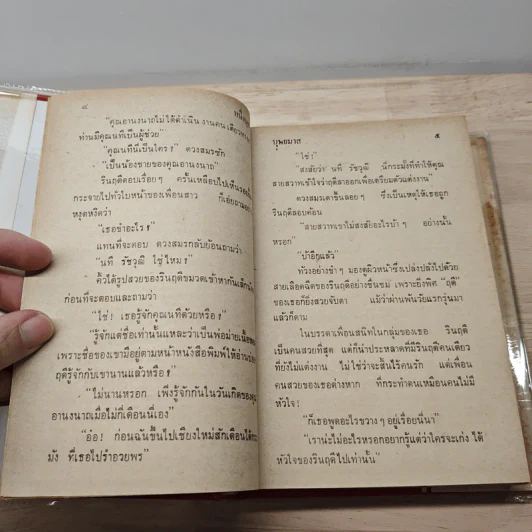 ๘
"คุณอานงนาถไม่ได้ดำเนินงานคนเดียว
ท่านมีคุณนทีเป็นผู้ช่วย"
"คุณนทีนี่เป็นใคร?" ดวงสมรซัก
"เป็นน้องชายของคุณอานงนาถ"
รินฤดีตอบเรื่อยๆ ครั้นเหลือบไปเห็น
กระจายไปทั่วใบหน้าของเพื่อนสาว ก็เอ่ยถาม
หงุดหงิดว่า
"เธอขำอะไร?
แทนที่จะตอบ ดวงสมรกลับย้อนถามว่า
"นที รัชวุฒิ ใช่ไหม?
คิ้วได้รูปสวยของรินฤดีขมวดเข้าหากันเล็กน้อย
ก่อนที่จะตอบและถามว่า
"ใช่! เธอรู้จักคุณนทีด้วยหรือ?
"รู้จักแต่ชื่อเท่านั้นแหละว่าเป็นพ่อม่าย
เพราะชื่อของเขามีอยู่ตามหน้าหนังสือพิมพ์ให้อ่าน
ฤดีรู้จักกับเขานานแล้วหรือ?
"ไม่นานหรอก เพิ่งรู้จักกันในวันเกิดของคุณ
อานงนาถเมื่อไม่กี่เดือนนี่เอง"
"อ้อ! ก่อนฉันขึ้นไปเชียงใหม่สักเดือนได้
มัง ที่เธอไปรำอวยพร"
บุพยมาส
๕
"ใช่!"
"สงสัยว่า นที รัชวุฒิ นี่กระมังที่ทำให้คุณ
สายสวาทเข้าใจว่าฤดีลาออกเพื่อเตรียมตัวแต่งงาน"
ดวงสมรเดาขึ้นลอยๆ ซึ่งเป็นเหตุให้เธอถูก
รินฤดีสอบค้อน
"สายสวาทเขาไม่สงสัยอะไรบ้าๆ อย่างนั้น
หรอก"
"บ้าอีกแล้ว"
ท้วงอย่างขำๆ มองดูผิวหน้าซึ่งเปล่งปลั่งไปด้วย
สายเลือดฉีดของรินฤดีอย่างชื่นชม เพราะยิ่งพิศ "ฤดี"
ของเธอก็ยิ่งสวยจับตา แม้ว่าผ่านพ้นวัยแรกรุ่นมา
แล้วก็ตาม
ในบรรดาเพื่อนสนิทในกลุ่มของเธอ รินฤดี
เป็นคนสวยที่สุด แต่ก็น่าประหลาดที่มีรินฤดีคนเดียว
ที่ยังไม่แต่งงาน ไม่ใช่ว่าจะสิ้นไร้คนรัก แต่เพื่อน
คนสวยของเธอต่างหาก ที่กระทำตนเหมือนคนไม่มี
หัวใจ!
"ก็เธอพูดอะไรขวางๆ อยู่เรื่อยนี่นา"
"เราน่ะไม่อะไรหรอกอยากรู้แต่ว่าใครจะเก่ง ได้
หัวใจของรินฤดีไปเท่านั้น"